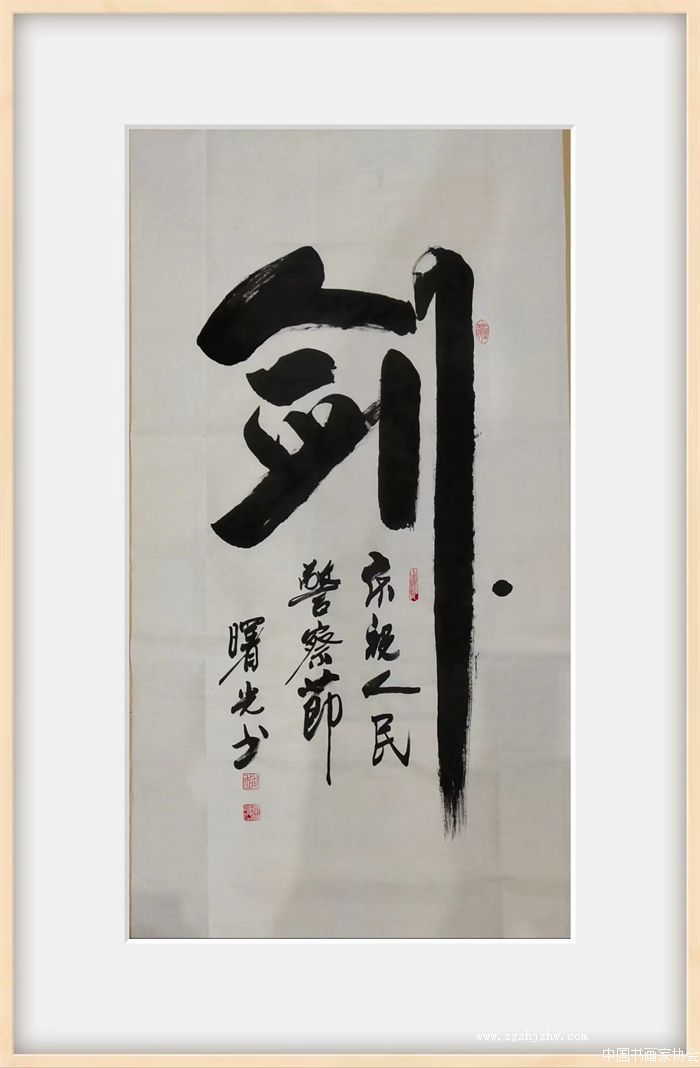 剑
庆祝人民
警察節
曙光书
www.zgshjxhw.com
中国书画家协会